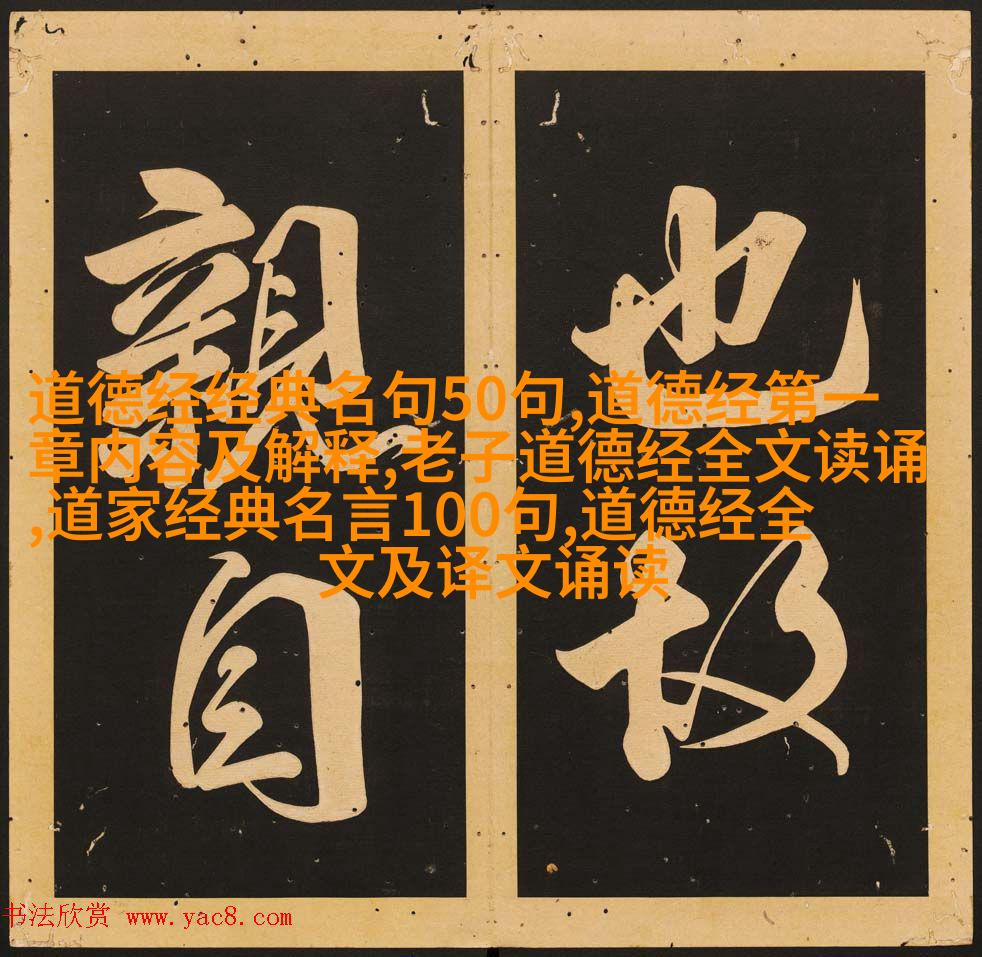 也故
親自
道德经经典名句50句,道德经第一
章内容及解释,老子道德经全文读诵
,道家经典名言100句,道德经全
文及译文诵读
书法欣赏 www.yac8.com